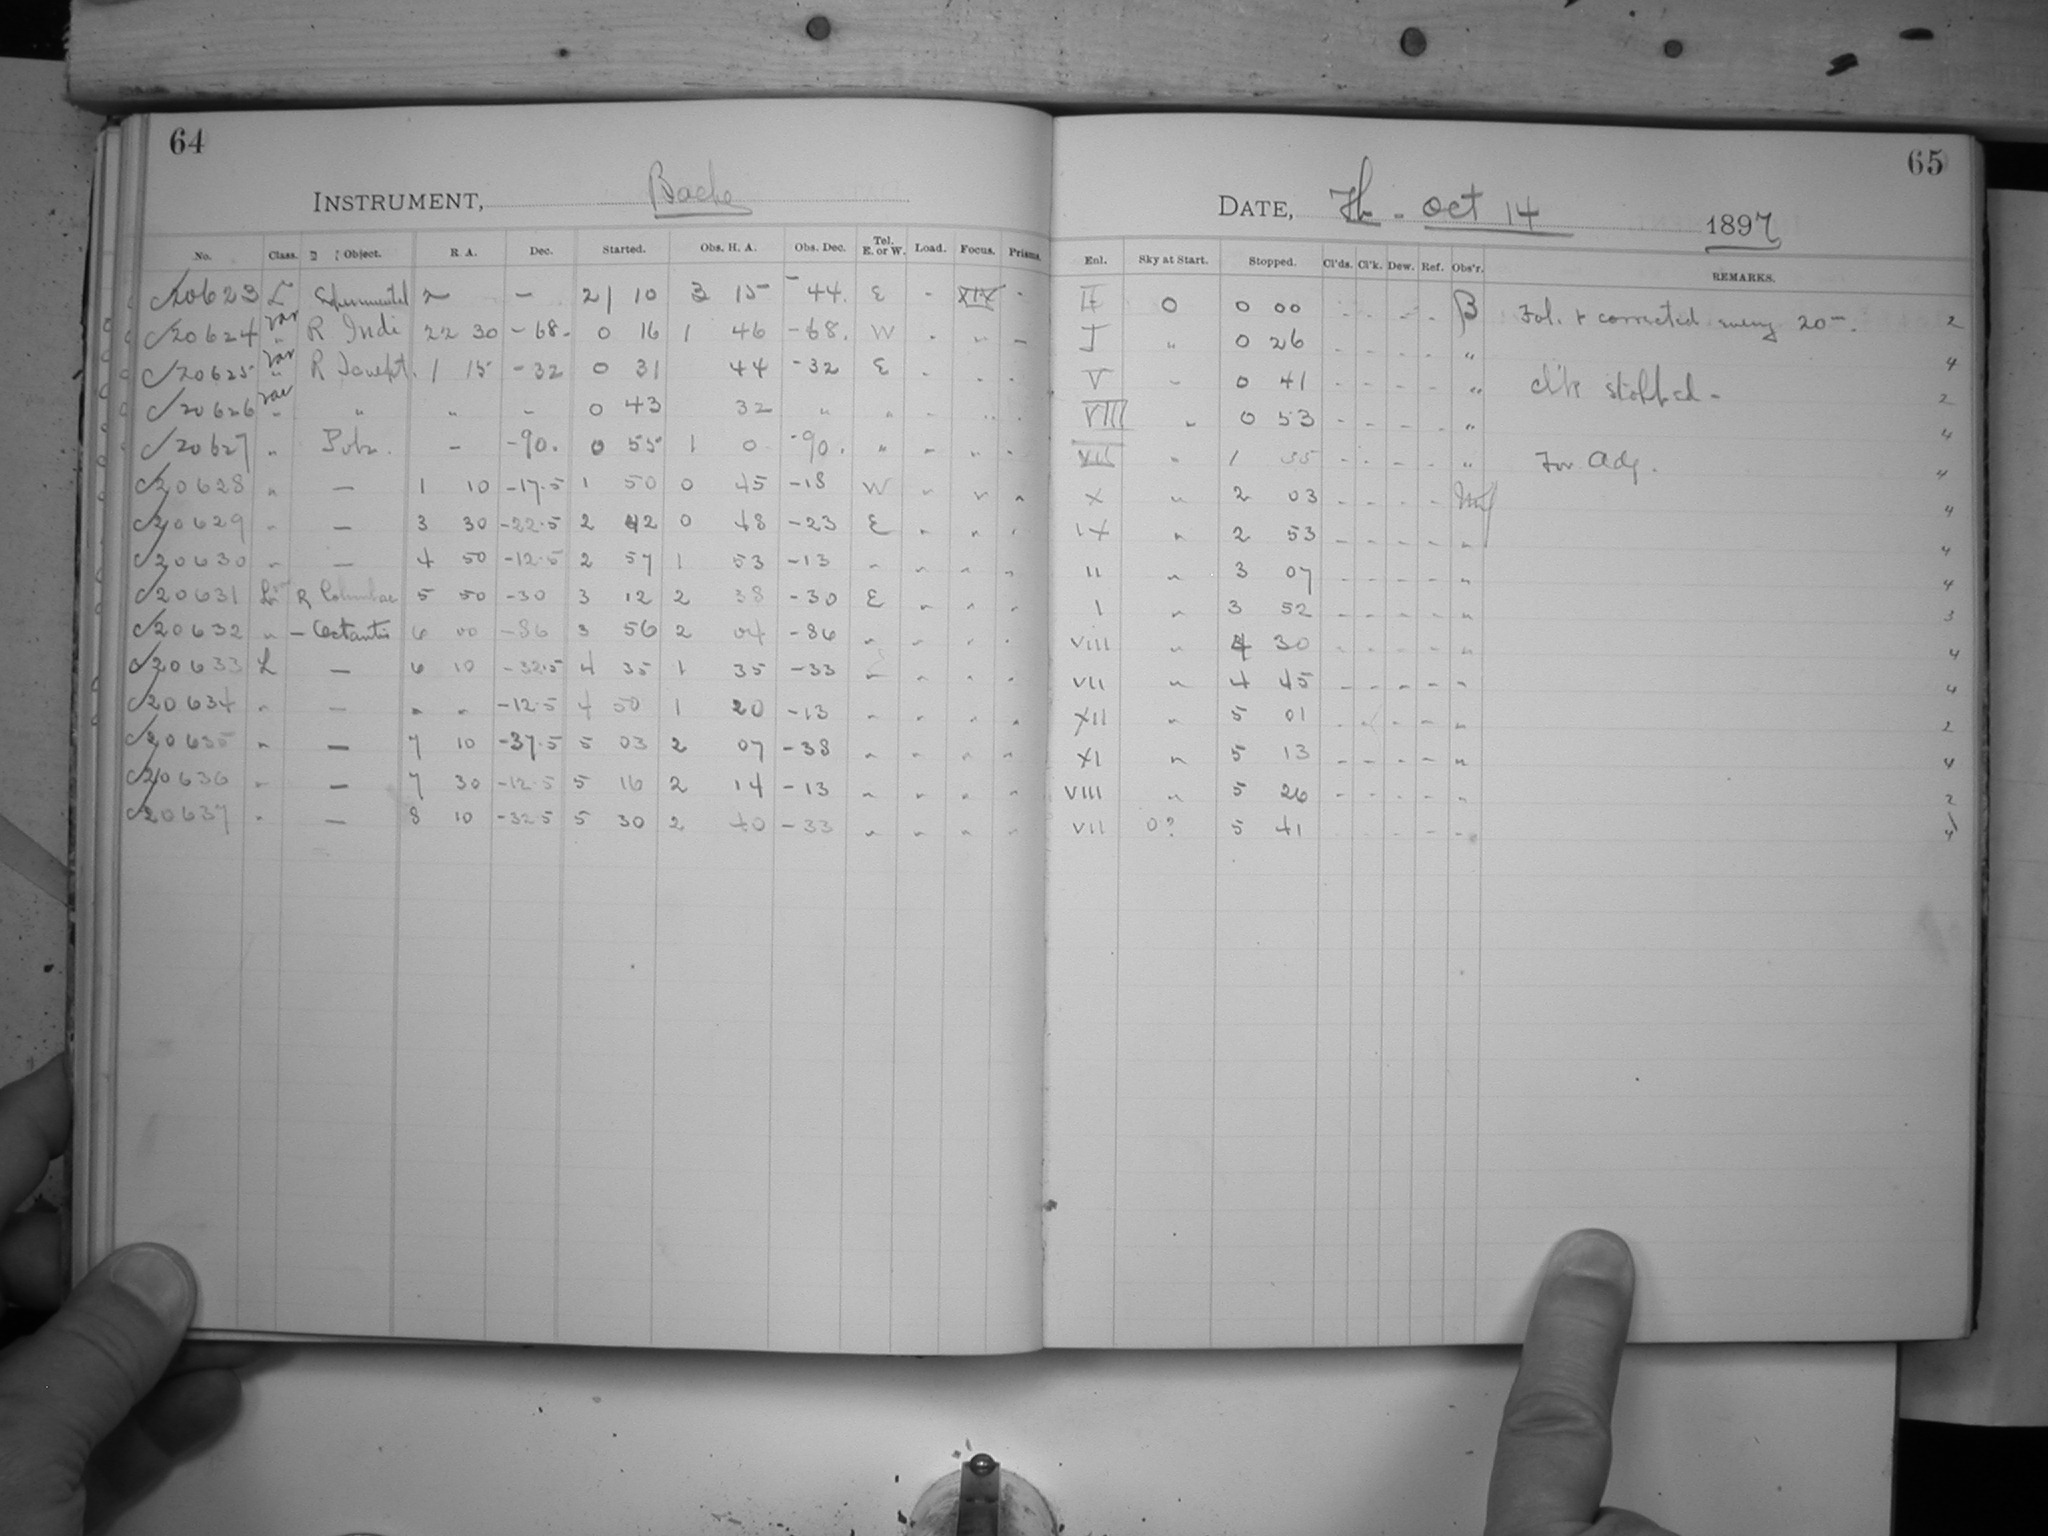 64
INSTRUMENT, Bache
No. Class. Object. R A. Dec. Started. Obs. H. A. Obs. Dec. Tel. E. or W. Load. Focus. Prisms.
20623 L Experimental ~ - 21 10 3 15 -44. E - XIX -
20624 var " R Indi 22 30 -68. 0 16 1 46 -68. W - " -
20625 var " R Sculpt. 1 15 -32 0 31 44 -32 E - - -
20626 var " " " - 0 43 32 " " - " -
20627 " Pole. - -90. 0 55 1 0 -90. " - " "
20628 " - 1 10 -17.5 1 50 0 45 -18 W " " "
20629 " - 3 30 -22.5 2 42 0 48 -23 E " " "
20630 " - 4 50 -12.5 2 57 1 53 -13 " " " "
20631 R Columbae 5 50 -30 3 12 2 38 -30 E " " "
20632 " - Octantis 6 00 -86 3 56 2 04 -86 " " " "
20633 L - 6 10 -32.5 4 35 1 35 -33 " " " "
20634 " - " " -12.5 4 50 1 20 -13 " " " "
20635 " - 7 10 -37.5 5 03 2 07 -38 " " " "
20636 " - 7 30 -12.5 5 16 2 14 -13 " " " "
20637 " - 8 10 -32.5 5 30 2 40 -33 " " " "
65
DATE, Th - Oct 14 1897
Enl. Sky at Start. Stopped. Cl'ds. Cl'k. Dew. Ref. Obs'r. REMARKS.
II 0 0 00 - - - - B Fol. & corrected every 20m. 2
I " 0 26 - - - - " 4
V - 0 41 - - - - " cl'k stopped - 2
VIII " 0 53 - - - - " 4
VII " 1 - - - - " For Adj. 4
X " 2 03 - - - - 4
IX " 2 53 - - - - " 4
II " 3 07 - - - - " 4
I " 3 52 - - - - " 3
VIII " 4 30 - - - - " 4
VII " 4 45 - - - - " 4
XII " 5 01 - - - - " 2
XI " 5 13 - - - - " 4
VIII " 5 26 - - - - " 2
VII 0? 5 41 - - - - " 4